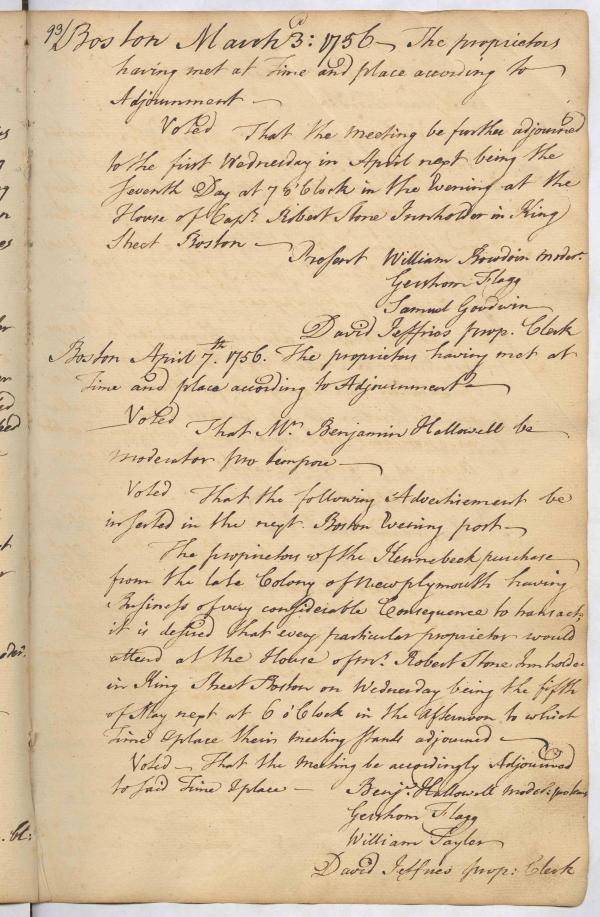 93/ Boston March 3d: 1756 - The proprietors
having met at Time and place according to
Adjournment -
Voted That the meeting be further adjourned
to the first Wednesday in April next being the
Seventh Day at 7 o'Clock in the Evening at the
House of Capt. Robert Stone Innholder in King
Street Boston -
Present William Bowdoin moder.
Gershom Flagg
Samuel Goodwin
David Jeffries prop. Clerk
Boston April 7.th 1756. The proprietors having met at
Time and place according to Adjournment -
Voted That Mr. Benjamin Hallowell be
moderator pro tempore -
Voted That the following Advertisement be
inserted in the next Boston Evening post -
The proprietors of the Kennebeck purchase
from the late Colony of Newplymouth having
Business of very considerable Consequence to transact;
it is desired that every particular proprietor would
attend at the House of mr. Robert Stone Innholder
in King Street Boston on Wednesday being the fifth
of May next at 6 o'Clock in the Afternoon to which
Time & place their meeting stands adjourned -
Voted - That the meeting be accordingly Adjourned
to said Time & place - Benja. Hallowell moder:
Gershom Flagg
William Tayler
David Jeffries prop: Clerk